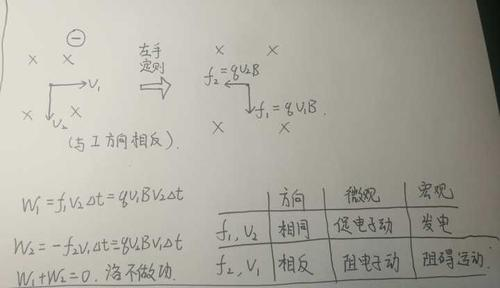 ⊖
× ×
V₁
× ×
V₂
(与I方向相反).
左手
定则
× ×
f₂=qv₂B
f₁=qv₁B.
× ×
W₁=f₁v₂Δt=qv₁Bv₂Δt
W₂=-f₂v₁Δt=qv₂Bv₁Δt
W₁+W₂=0. 洛不做功.
方向 微观 宏观
f₁、V₂ 相同 促电子动 发电
f₂、V₁ 相反 阻电子动 阻碍运动.